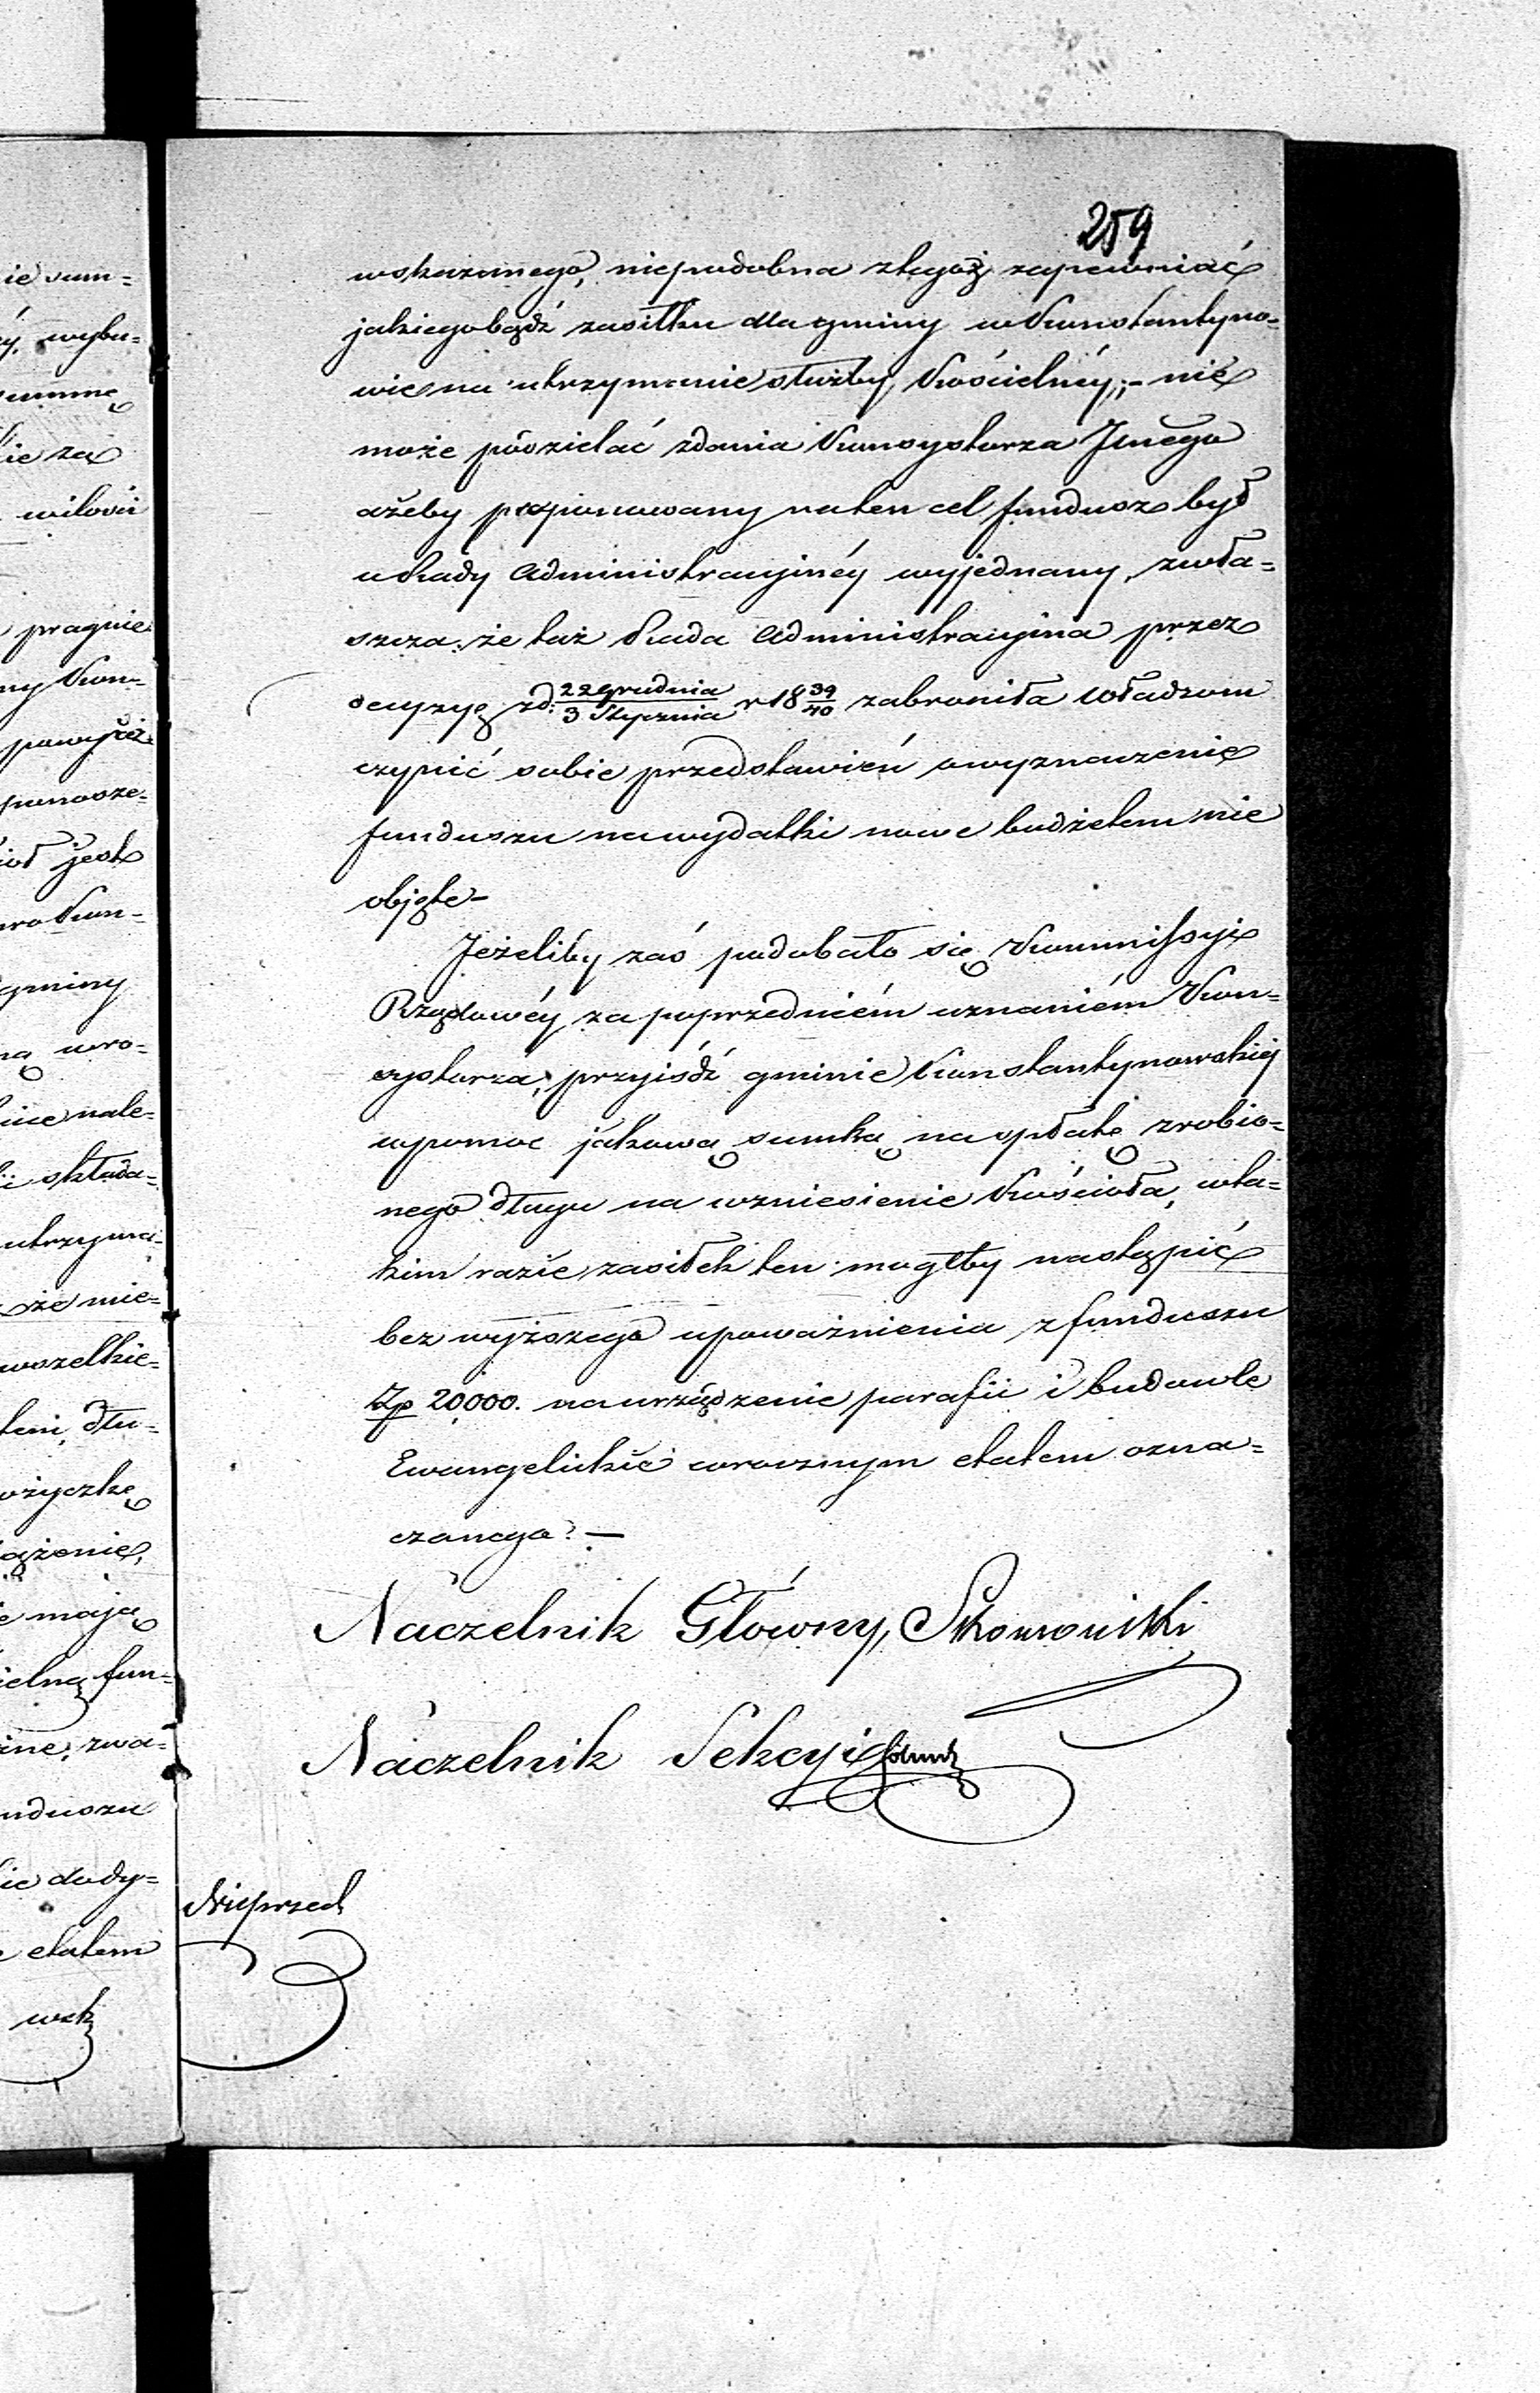 259
wskazanego, niepodobna ztegoż zapewniać
jakiegobądź zasiłku dla gminy w Konstantyno=
wie na utrzymanie służby Kościelnéy;- nie
może podzielać zdania Konsystorza Jnego
ażeby proponowany na ten cel fundusz był
u Rady Administracyinéy wyjednany, zwła=
szcza: że taż Rada Administracyina przez
decyzyę zd: 22 Grudnia / 3 Stycznia r 18 39/40 zabroniła Władzom
czynić sobie przedstawień o wyznaczenie
funduszu na wydatki nowe budżetem nie
objęte-
Jeżeliby zaś podobało się Kommissyi
Rządowéy za poprzedniém uznaniém Kon=
systorza, przyiśdź gminie Konstantynowskiéj
w pomoc jakową sumką na opłatę zrobio=
nego długu na wzniesienie Kościoła, wta=
kim razie zasiłek ten mógłby nastąpić
bez wyższego upoważnienia z funduszu
Zp 20,000. na urządzenie parafii i budowle
Ewangelickie corocznym etatem ozna=
czonego.—
Naczelnik Główny,
Naczelnik Sekcyi
ie sum=
wybu=
summę
ie za
pragnie
ny Kon=
powyższe
ponosze=
jest
Kon=
gminy
uro=
nale=
składa=
utrzyma=
że mie=
wszelkie=
dłu=
ożyczkę
ążenie,
mają
ielną fun=
zwa=
nduszu
ie dody=
etatem